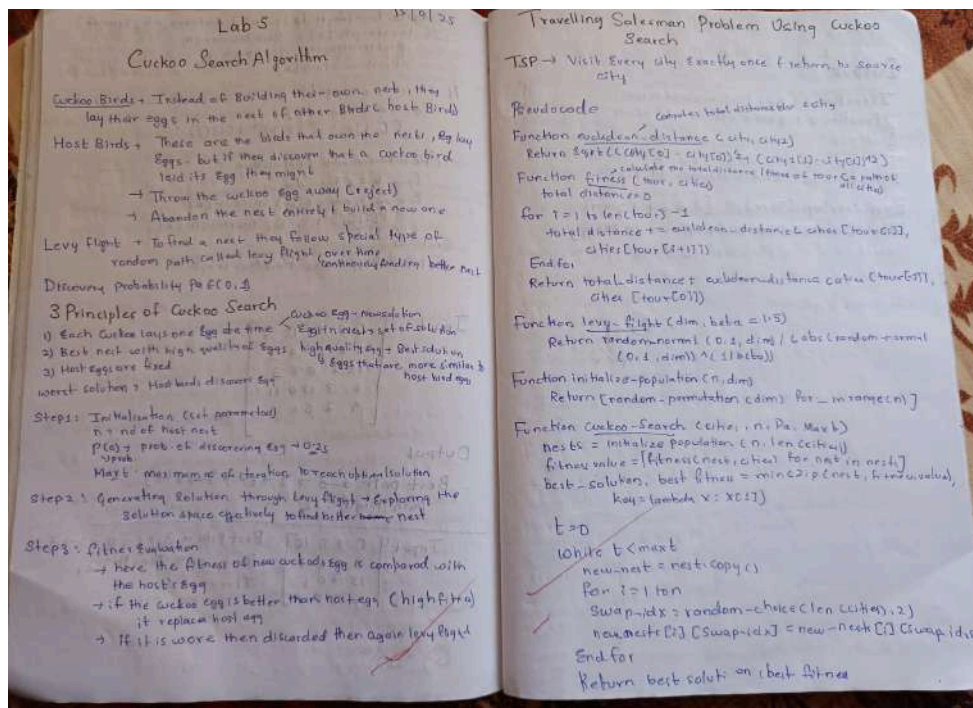 Lab 5
Cuckoo Search Algorithm
Cuckoo Birds → Instead of Building their own nest, they
lay their eggs in the nest of other Birds (host Birds)
Host Birds → These are the birds that own the nests, lay
Eggs. but if they discover that a cuckoo bird
laid its Egg they might
→ Throw the cuckoo Egg away (reject)
→ Abandon the nest entirely & build a new one
Levy flight → To find a nest they follow special type of
random path called levy flight, over time
continuously finding better nest
Discovery Probability Pa ∈ (0,1)
3 Principles of Cuckoo Search
cuckoo Egg - new solution
1) Each Cuckoo lays one Egg at a time
Egg in nest → set of solution
2) Best nest with high quality of Eggs, high quality egg → Best solution
Eggs that are more similar to
host bird egg
3) Host Eggs are fixed
worst solution → Host birds discover Egg
Step 1: Initialisation (set parameters)
n → no of host nest
P(a) → prob. of discovering Egg → 0.25
Max t - maximum no of iteration to reach optimal solution
Step 2: Generating Solution through Levy flight → Exploring the
solution space effectively to find better nest
Step 3: fitness Evaluation
→ here the fitness of new cuckoo's egg is compared with
the host's Egg
→ if the cuckoo egg is better than host egg (high fitness)
it replace host egg
→ If it is worse then discarded then again levy flight
Travelling Salesman Problem Using Cuckoo
Search
TSP → Visit Every city Exactly once & return to source
city
Pseudocode
computes total distance city
Function euclidean-distance (city1, city2)
Return Sqrt((city1[0] - city2[0])^2 + (city1[1] - city2[1])^2)
calculate the total distance (fitness of tour (a path of all cities)
Function fitness (tour, cities)
total distance = 0
for i = 1 to len(tour) - 1
total distance += euclidean-distance (cities [tour[i]],
cities [tour[i+1]])
End for
Return total_distance + euclidean-distance (cities [tour[-1]],
cities [tour[0]])
Function levy-flight (dim, beta = 1.5)
Return random.normal (0,1,dim) / (abs (random.normal
(0,1,dim)) ^ (1/beta))
Function initialize-population (n, dim)
Return [random-permutation (dim) for _ in range(n)]
Function cuckoo-search (cities, n, Pa, Max t)
nests = initialize population (n, len(cities))
fitness value = [fitness(nest, cities) for nest in nests]
best_solution, best fitness = min(zip(nest, fitness value),
key = lambda x: x[1])
t = 0
while t < max t
new-nest = nest.copy()
for i = 1 to n
Swap-idx = random-choice (len (cities), 2)
new nests [i] [swap-idx] = new-nests [i] [swap idx
End for
Return best solution, best fitness